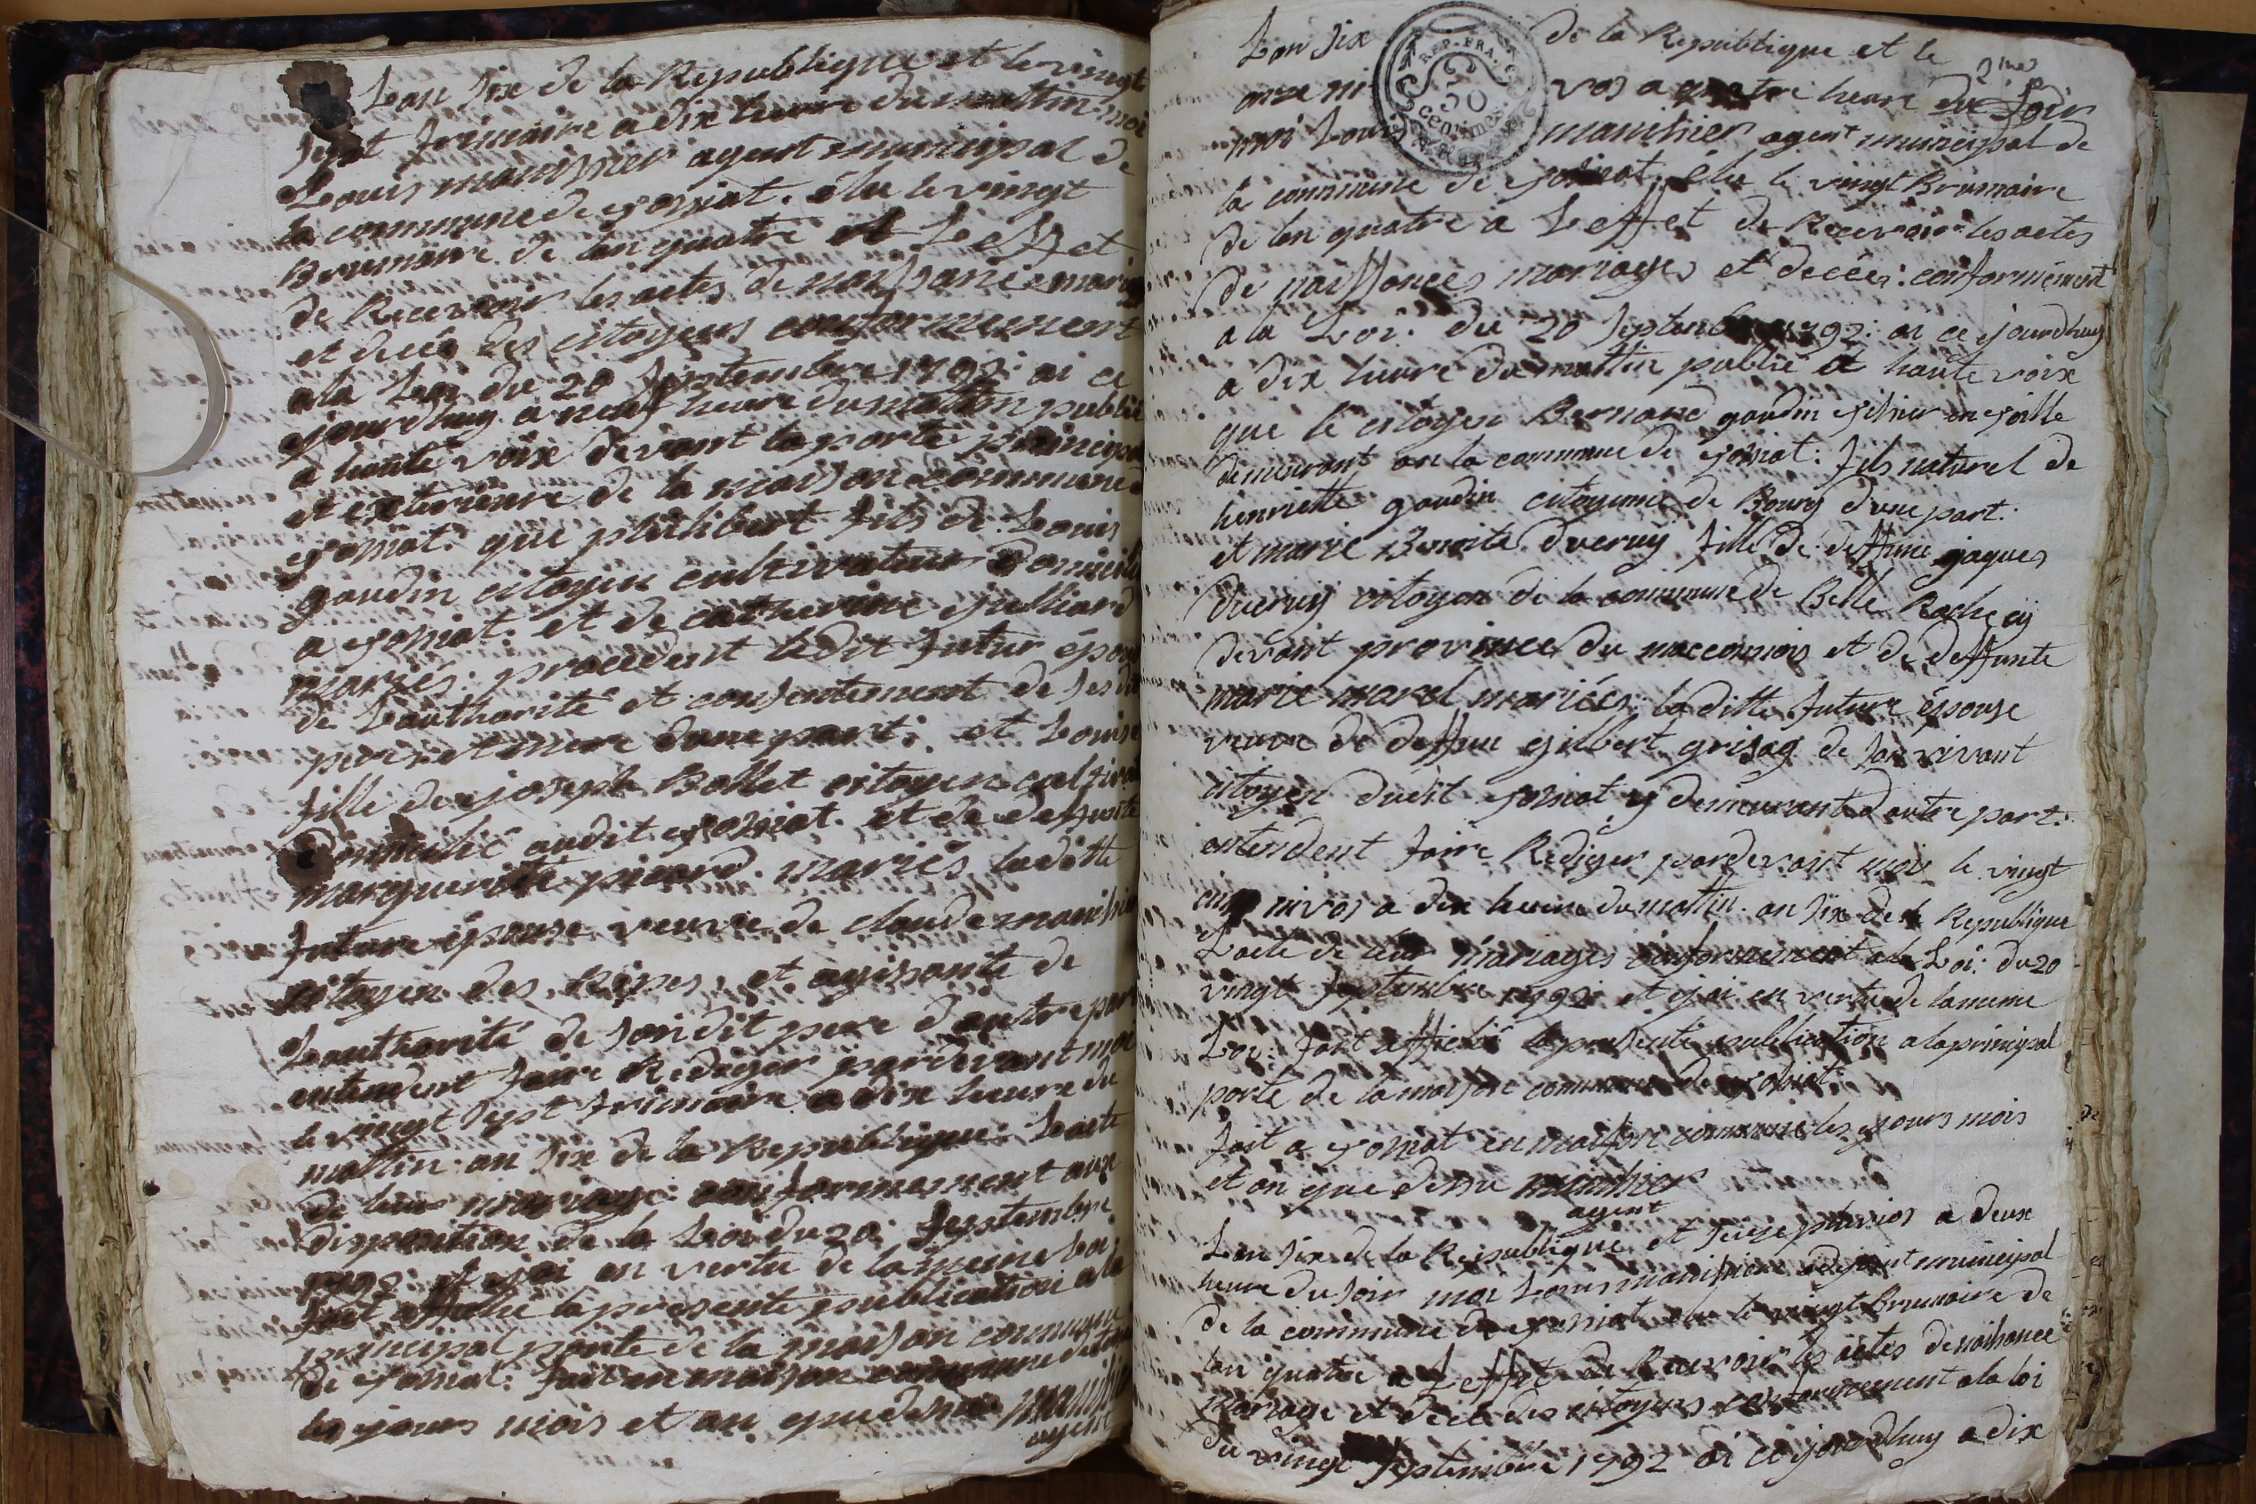 Lan Six de la Republique et le vingt
Sept frimaire a dix heure du mattin moi
Louis manissier agent municipal de
la commune de josniat. élu le vingt
Brumaire de lan quatre a Leffet
de Recevoir les actes de naissance mariage
et decés des citoyens conformement
a la Loi du 20 Septembre 1792: ai ce
jourdhuy a neuf heure du mattin publié
a haute voix devant la porte principal
et exterieure de la maison commune
josniat. que philibert fils de Louis
gaudin citoyen cultivateur domicilié
a josniat. et de catherine julliard
mariés. procedent ledit futur époux
de Lauthorité et consentement de ses dit
pere et mere dune part: et Louise
fille de joseph Bollet citoyen cultivateur
Domicilié audit josniat. et de deffunte
marguerite picard. mariés, laditte
future épouse veuve de claude
citoyen des Ripes, et agissante de
Lauthorité de Son dit pere dautre part
entendent faire Rediger pardevant moi
le vingt Sept frimaire a dix heure du
mattin. an Six de la Republique. Lacte
de leur mariage: conformement aux
disposition de la Loi du 20 Septembre
1792 et jai en vertu de la meme Loi
fait affiché la presente publication a la
principal porte de la maison commune
de josniat: fait en maison commune
les jours mois et an que dessus
agent
Lan Six de la Republique et le
onze ni vos a quatre heure du Soir
moi Louis manissier agent municipal de
REP. FRA.
50
centimes
la commune de josniat. élu le vingt Brumaire
de lan quatre a Leffet de Recevoir les actes
de naissances mariages et decés: conformément
a la Loi: du 20 Septembre 1792: ai ce jourdhuy
a dix heure du mattin publié a haute voix
que le citoyen Bernard gaudin
demeurant en la commune de josniat: fils naturel de
henriette gaudin citoyenne de Bourg dune part:
et marie Benoite ducruy fille de deffunt jaques
ducruy citoyen de la commune de Belle Roche cy
devant province du macconnois et de deffunte
marie marel mariés: la ditte future épouse
veuve de deffunt gilbert grisog de Son vivant
citoyen dudit josniat y demeurant dautre part:
entendent faire Rediger pardevant moi le vingt
cinq nivos a dix heure du mattin. an Six de la Republique
Lacte de leur mariages conformement a la Loi: du 20
vingt Septembre 1792 et jai en vertu de la meme
Loi: fait affiché la presente publication a la principal
porte de la maison commune de josniat:
fait a josniat en maison commune les jours mois
et an que dessu manissier
agent
Lan Six de la Republique et Seize pluvios a deux
heure du Soir moi Louis manissier agent municipal
de la commune de josniat élu le vingt Brumaire de
lan quatre a Leffet de Recevoir les actes de naissance
mariage et decés des citoyens conformement a la loi
du vingt Septembre 1792 ai ce jourdhuy a dix